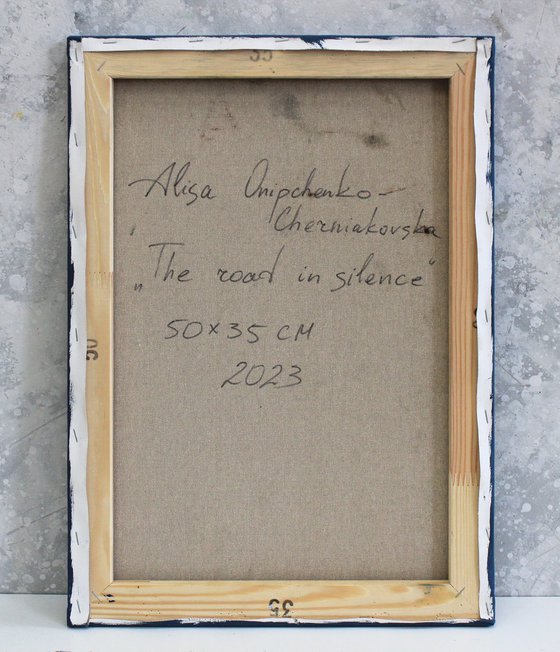 35
Alisa Onipchenko-
Cherniakovska
„The road in silence“
50×35 см
2023
50
35